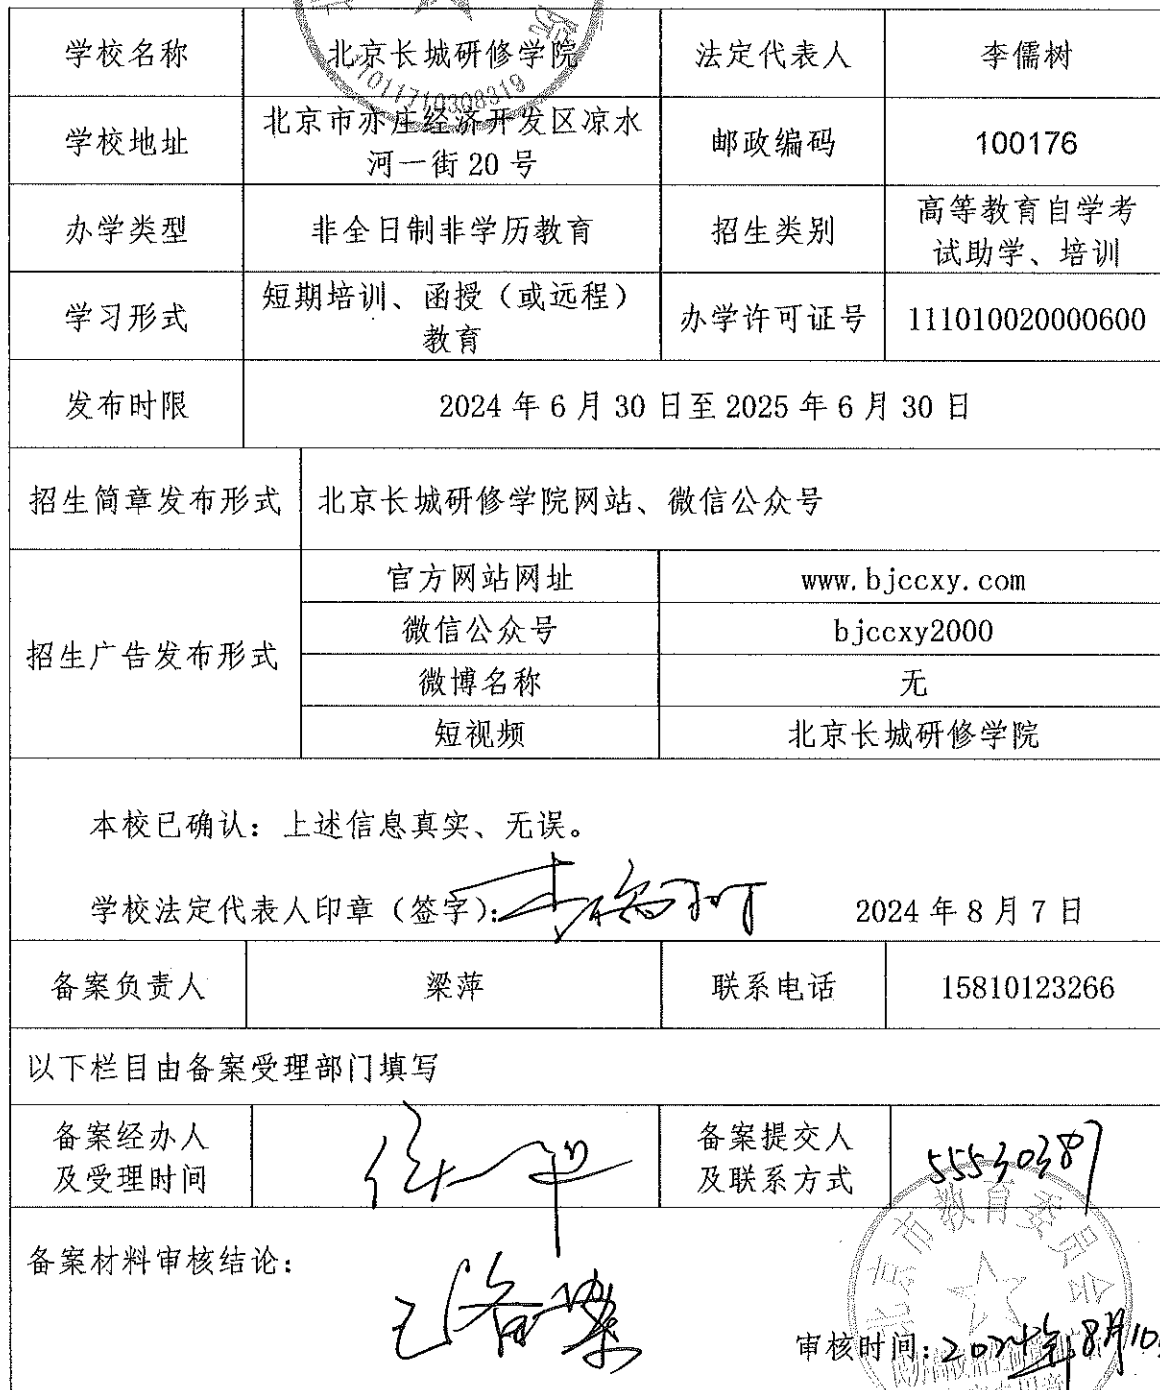 学校名称 北京长城研修学院 法定代表人 李儒树
11011710308319
学校地址 北京市亦庄经济开发区凉水
河一街 20 号 邮政编码 100176
办学类型 非全日制非学历教育 招生类别 高等教育自学考
试助学、培训
学习形式 短期培训、函授（或远程）
教育 办学许可证号 111010020000600
发布时限 2024 年 6 月 30 日至 2025 年 6 月 30 日
招生简章发布形式 北京长城研修学院网站、微信公众号
招生广告发布形式
官方网站网址 www.bjccxy.com
微信公众号 bjccxy2000
微博名称 无
短视频 北京长城研修学院
本校已确认：上述信息真实、无误。
学校法定代表人印章（签字）： 2024 年 8 月 7 日
备案负责人 梁萍 联系电话 15810123266
以下栏目由备案受理部门填写
备案经办人
及受理时间
备案提交人
及联系方式
55530387
北京市教育委员会
备案材料审核结论：
已备案
审核时间：2024年8月10